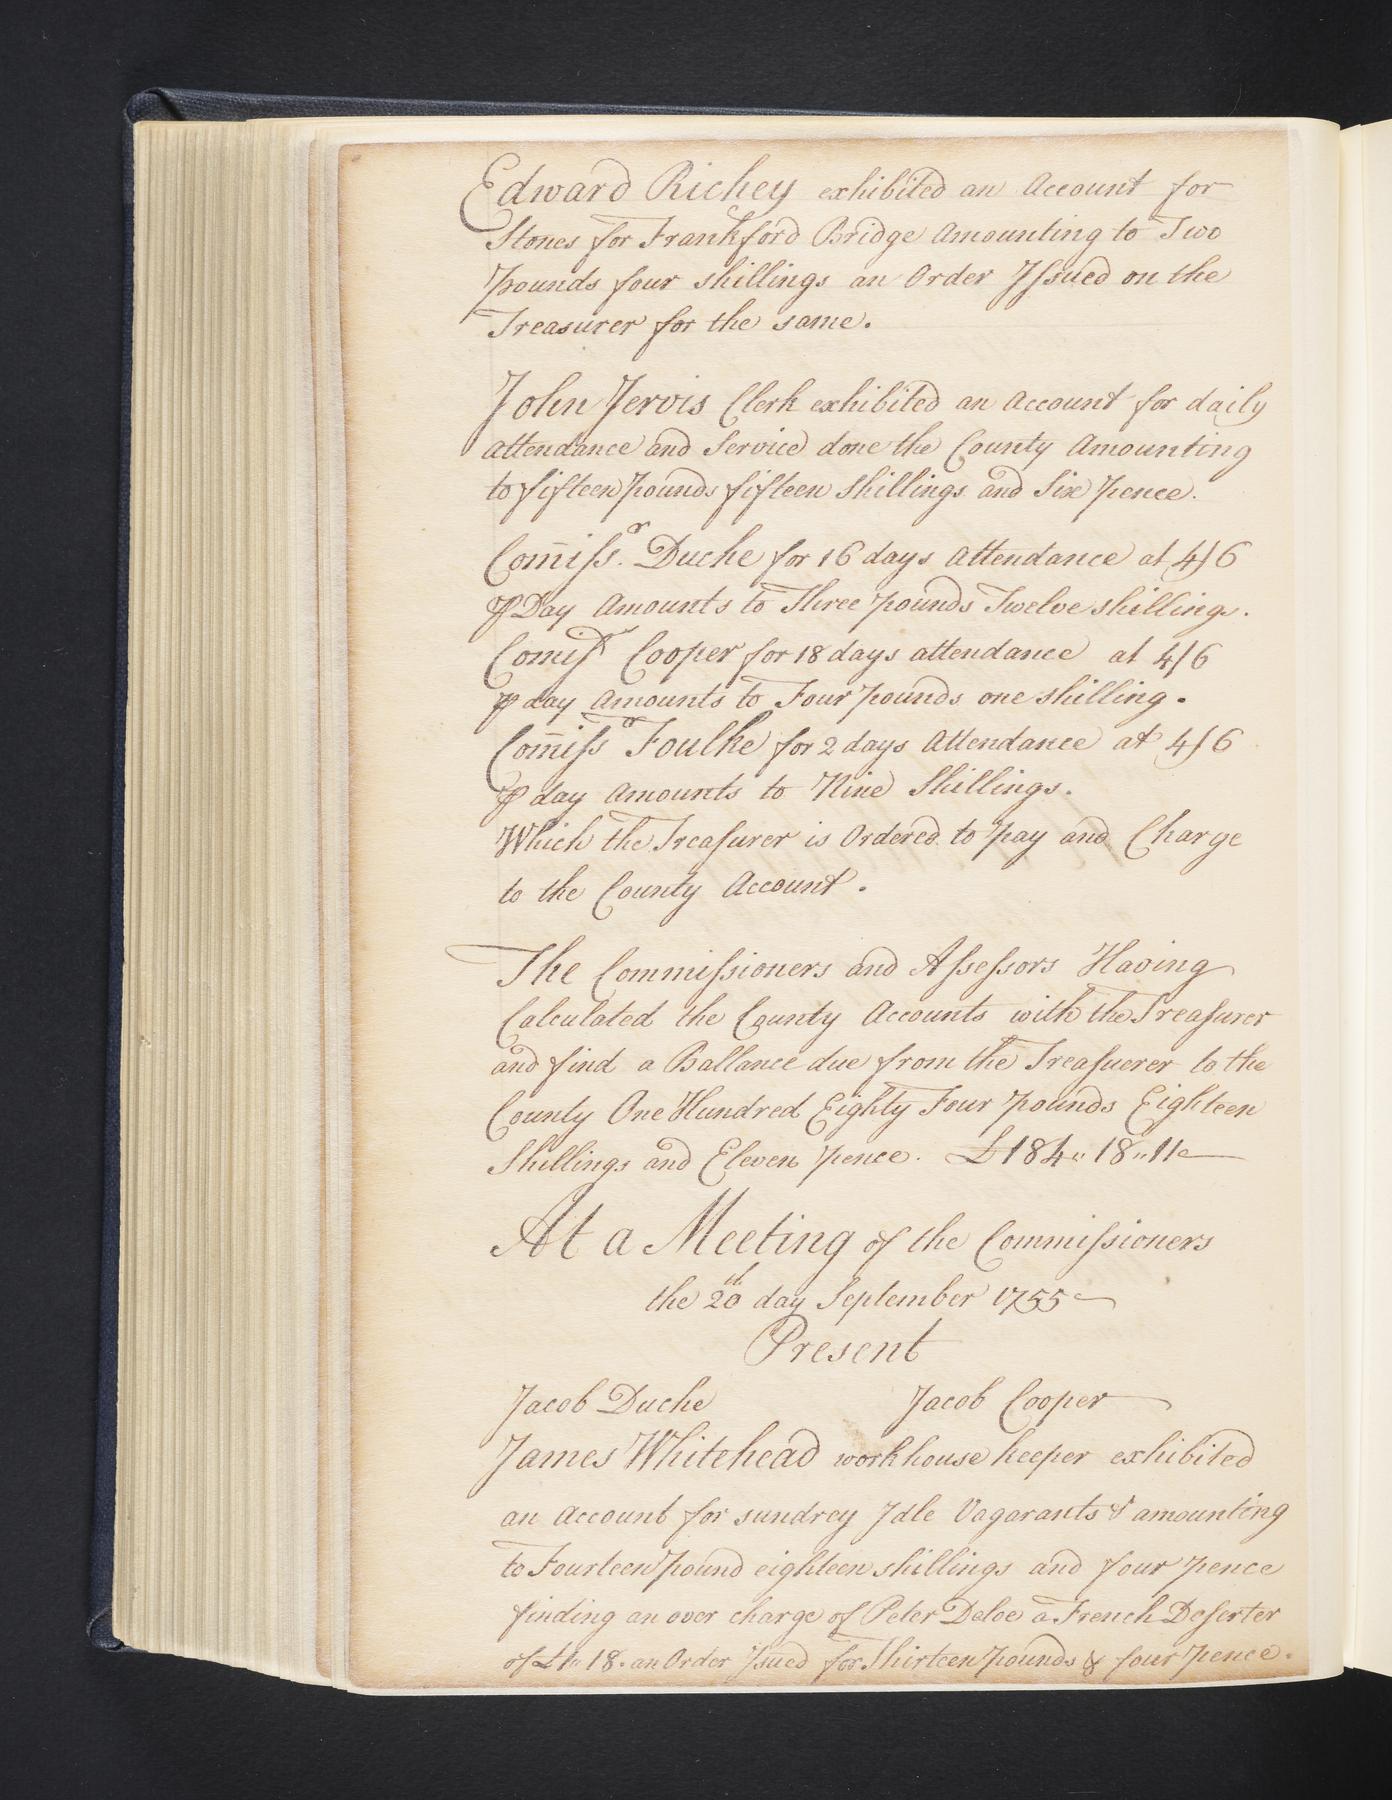 Edward Richey exhibited an Account for
Stones for Frankford Bridge Amounting to Two
pounds four shillings an Order Issued on the
Treasurer for the same.
John Jervis Clerk exhibited an Account for daily
attendance and Service done the County Amounting
to fifteen pounds fifteen Shillings and Six pence.
Com̄iſs.r Duche for 16 days Attendance at 4/6
⅌ Day Amounts to Three pounds Twelve shillings.
Comiſsr Cooper for 18 days attendance at 4/6
⅌ day amounts to Four pounds one shilling.
Com̄iſsr Foulke for 2 days Attendance at 4/6
⅌ day Amounts to Nine Shillings.
Which the Treaſurer is Ordered to pay and Charge
to the County Account.
The Commiſsioners and Aſseſsors Having
Calculated the County Accounts with the Treaſurer
and find a Ballance due from the Treaſuerer to the
County One Hundred Eighty Four pounds Eighteen
Shillings and Eleven pence. £184〃18〃11
At a Meeting of the Commiſsioners
the 20th day September 1755
Present
Jacob Duche Jacob Cooper
James Whitehead workhouse keeper exhibited
an Account for sundrey Idle Vagarants & amounting
to Fourteen pound eighteen shillings and four pence
finding an over charge of Peter Deloe a French Deſerter
of £1〃18. an Order Iſsued for Thirteen pounds & four pence.